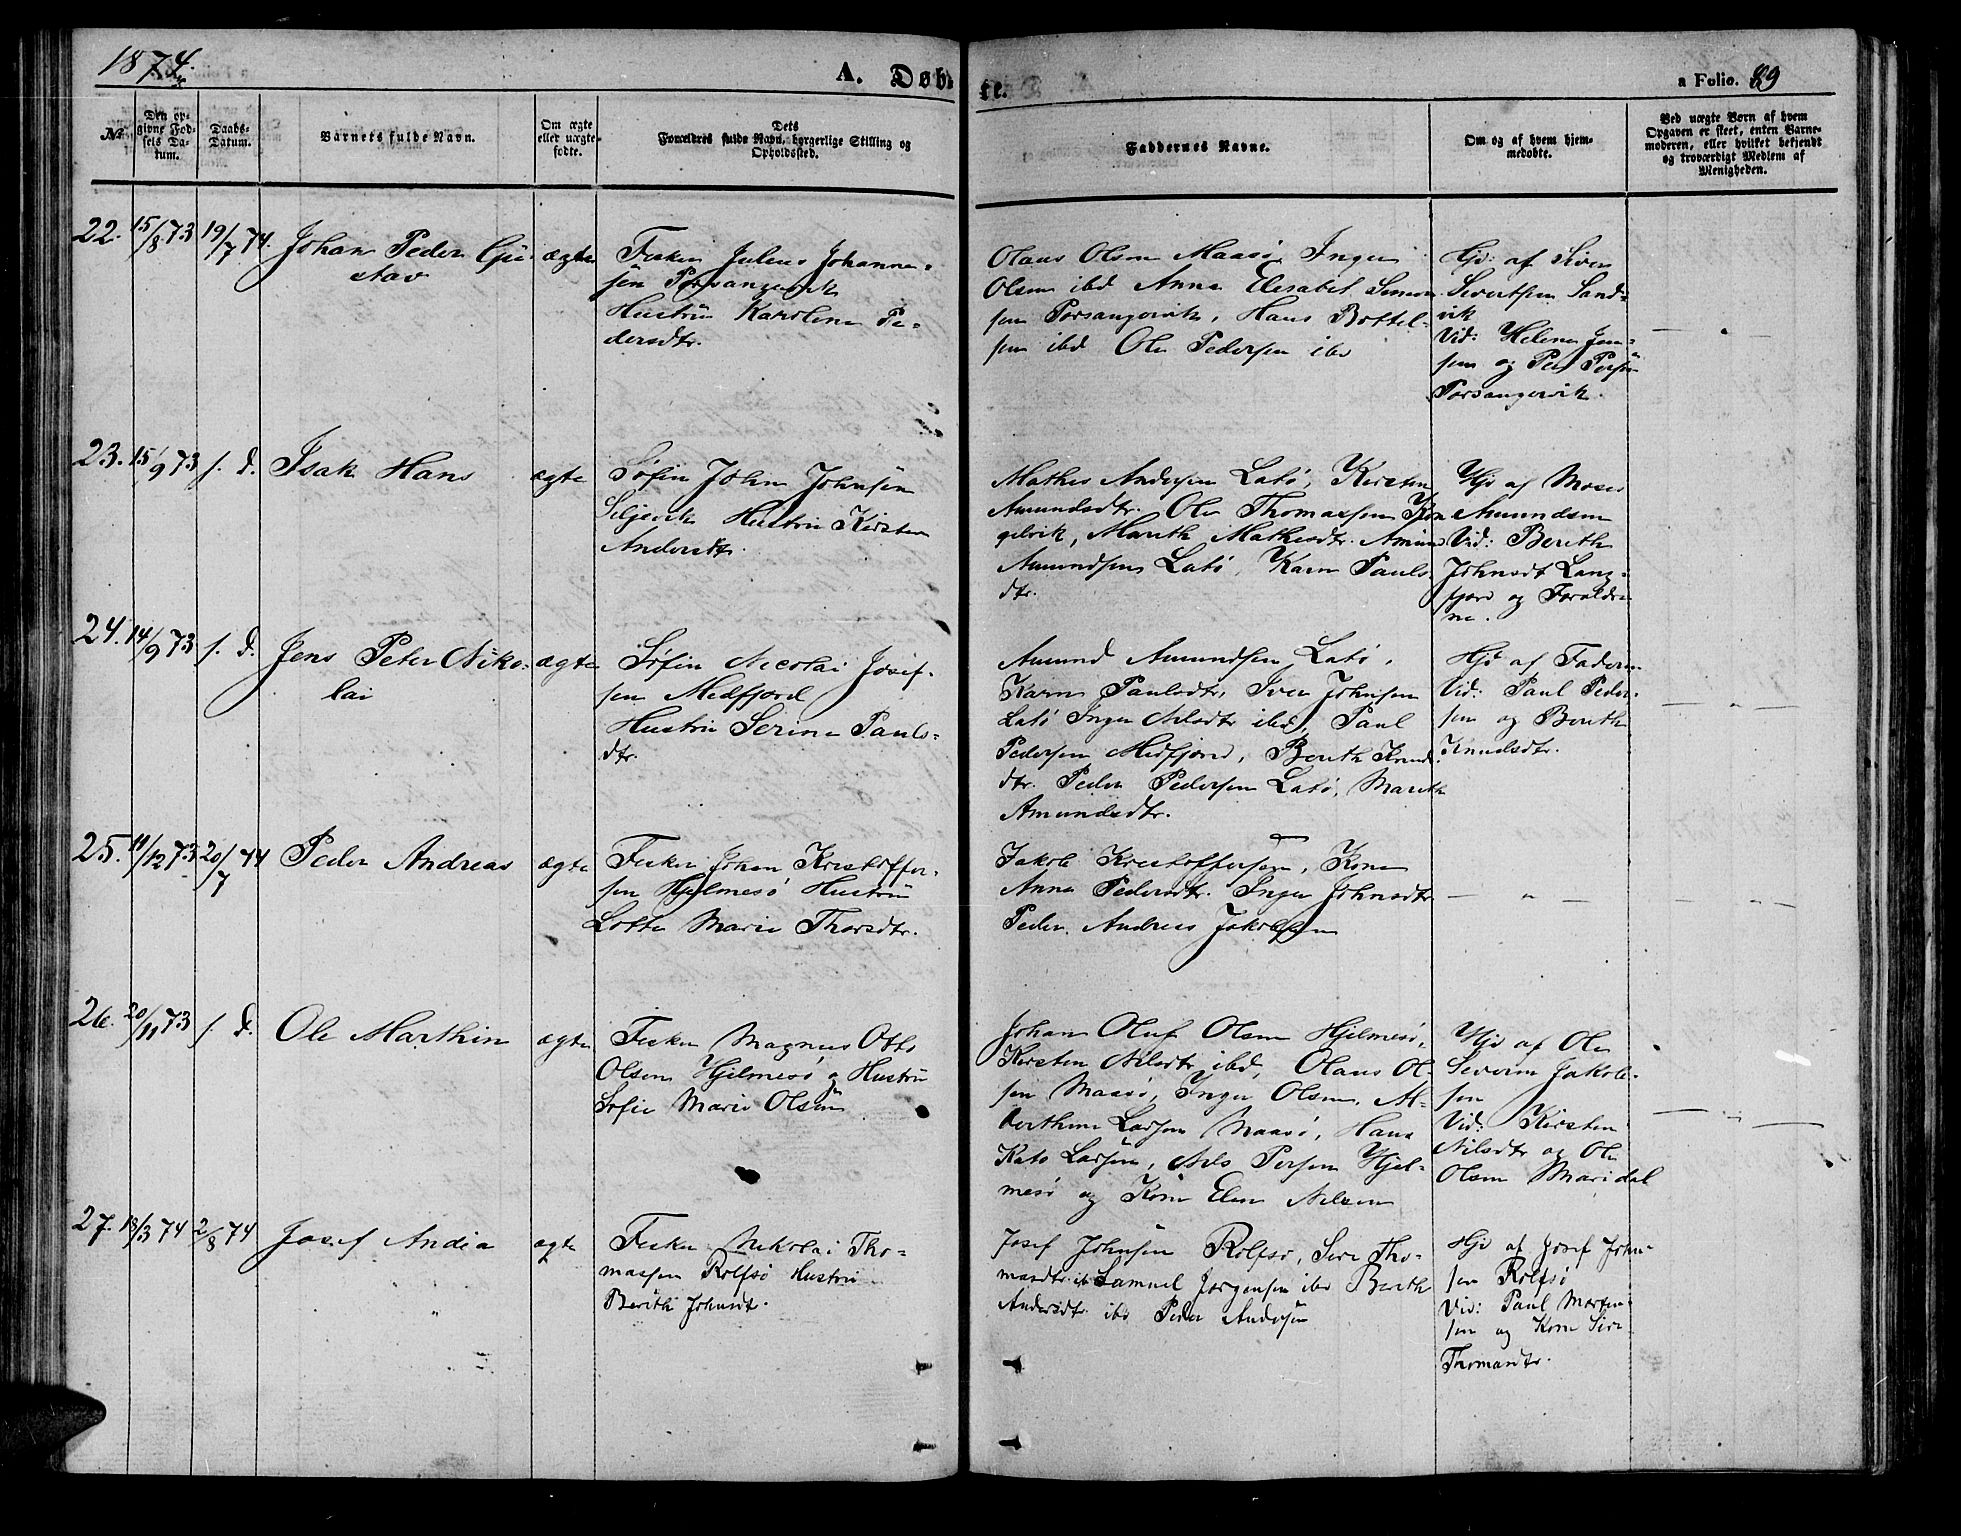 1874.
A. Døbte.
a Folio. 89
No.
Den opgivne Fødsels Datum.
Daabs-Datum.
Barnets fulde Navn.
Om ægte eller uægte født.
Dets Forældres fulde Navn, borgerlige Stilling og Opholdssted.
Faddernes Navne.
Om og af hvem hjemmedøbte.
Ved uægte Børn af hvem Opgaven er skeet, enten Barnemoderen, eller hvilket bekjendt og troværdigt Medlem af Menigheden.
22. 15/8 73 19/7 74. Johan Peder Gu-
stav
ægte
Fisker Julius Johanne-
sen Porsangervik
Hustru Karoline Pe-
dersdtr.
Olaus Olsen Maasø, Inger
Olsen ibd Anna Elisabet Simon
sen Porsangervik, Hans Bottel-
sen ibd Ole Pedersen ibd
Hjd: af Siver
Sivertsen Sand-
vik
Vid: Helene Jon-
sen og Per Persen
Porsangervik.
23. 15/9 73 s. D. Isak Hans
ægte
Søfin John Johnsen
Seljevik Hustru Kirsten
Andersdtr.
Mathis Andersen Latø, Kirsten
Amundsdtr. Ole Thomassen Kon
gelvik, Marith Mathisdtr. Amund
Amundsen Latø, Karn Pauls-
dtr.
Hjd af Moses
Amundsen
Vid: Berith
Johnsdt Lang-
fjord og Forældre-
ne.
24. 14/9 73 s. D. Jens Peter Niko-
lai
ægte
Søfin Nicolai Josef-
sen Medfjord
Hustru Serine Pauls-
dtr.
Amund Amundsen Latø,
Karn Paulsdtr, Iver Johnsen
Latø Inger Nilsdtr ibd, Paul
Pedersen Medfjord, Berith Knuds
dtr. Peder Pedersen Latø, Marith
Amundsdtr.
Hjd af Faderen
Vid: Paul Peder-
sen og Berith
Knudsdtr.
25. 11/12 73 20/7 74 Peder Andreas
ægte
Fisker Johan Kristoffer-
sen Hjelmesø Hustru
Lotte Marie Thorsdtr.
Jakob Kristoffersen, Kone
Anna Pedersdtr. Inger Johnsdtr
Peder Andreas Jakobsen
26. 20/11 73 s. D. Ole Marthin
ægte
Fisker Magnus Otto
Olsen Hjelmesø og Hustru
Sofie Marie Olsen
Johan Oluf Olsen Hjelmesø,
Kirsten Nilsdtr ibd, Olaus Ol-
sen Maasø, Inger Olsen, Al-
berthine Larsen Maasø, Hans
Kato Larsen, Nils Persen Hjel-
mesø og Kone Elen Nilsen
Hjd af Ole
Severin Jakob-
sen
Vid: Kirsten
Nilsdtr og Ole
Olsen Maridal
27. 13/3 74 2/8 74 Josef Andia
ægte
Fisker Nikolai Tho-
massen Rolfsø Hustru
Berith Johnsdtr.
Josef Johnsen Rolfsø, Sire Tho-
masdtr. ib Samuel Jørgensen ibd Berith
Andersdtr. ibd Peder Andersen
Hjd af Josef John-
sen Rolfsø
Vid: Paul Morten-
sen og Kone Sire
Thomasdtr.